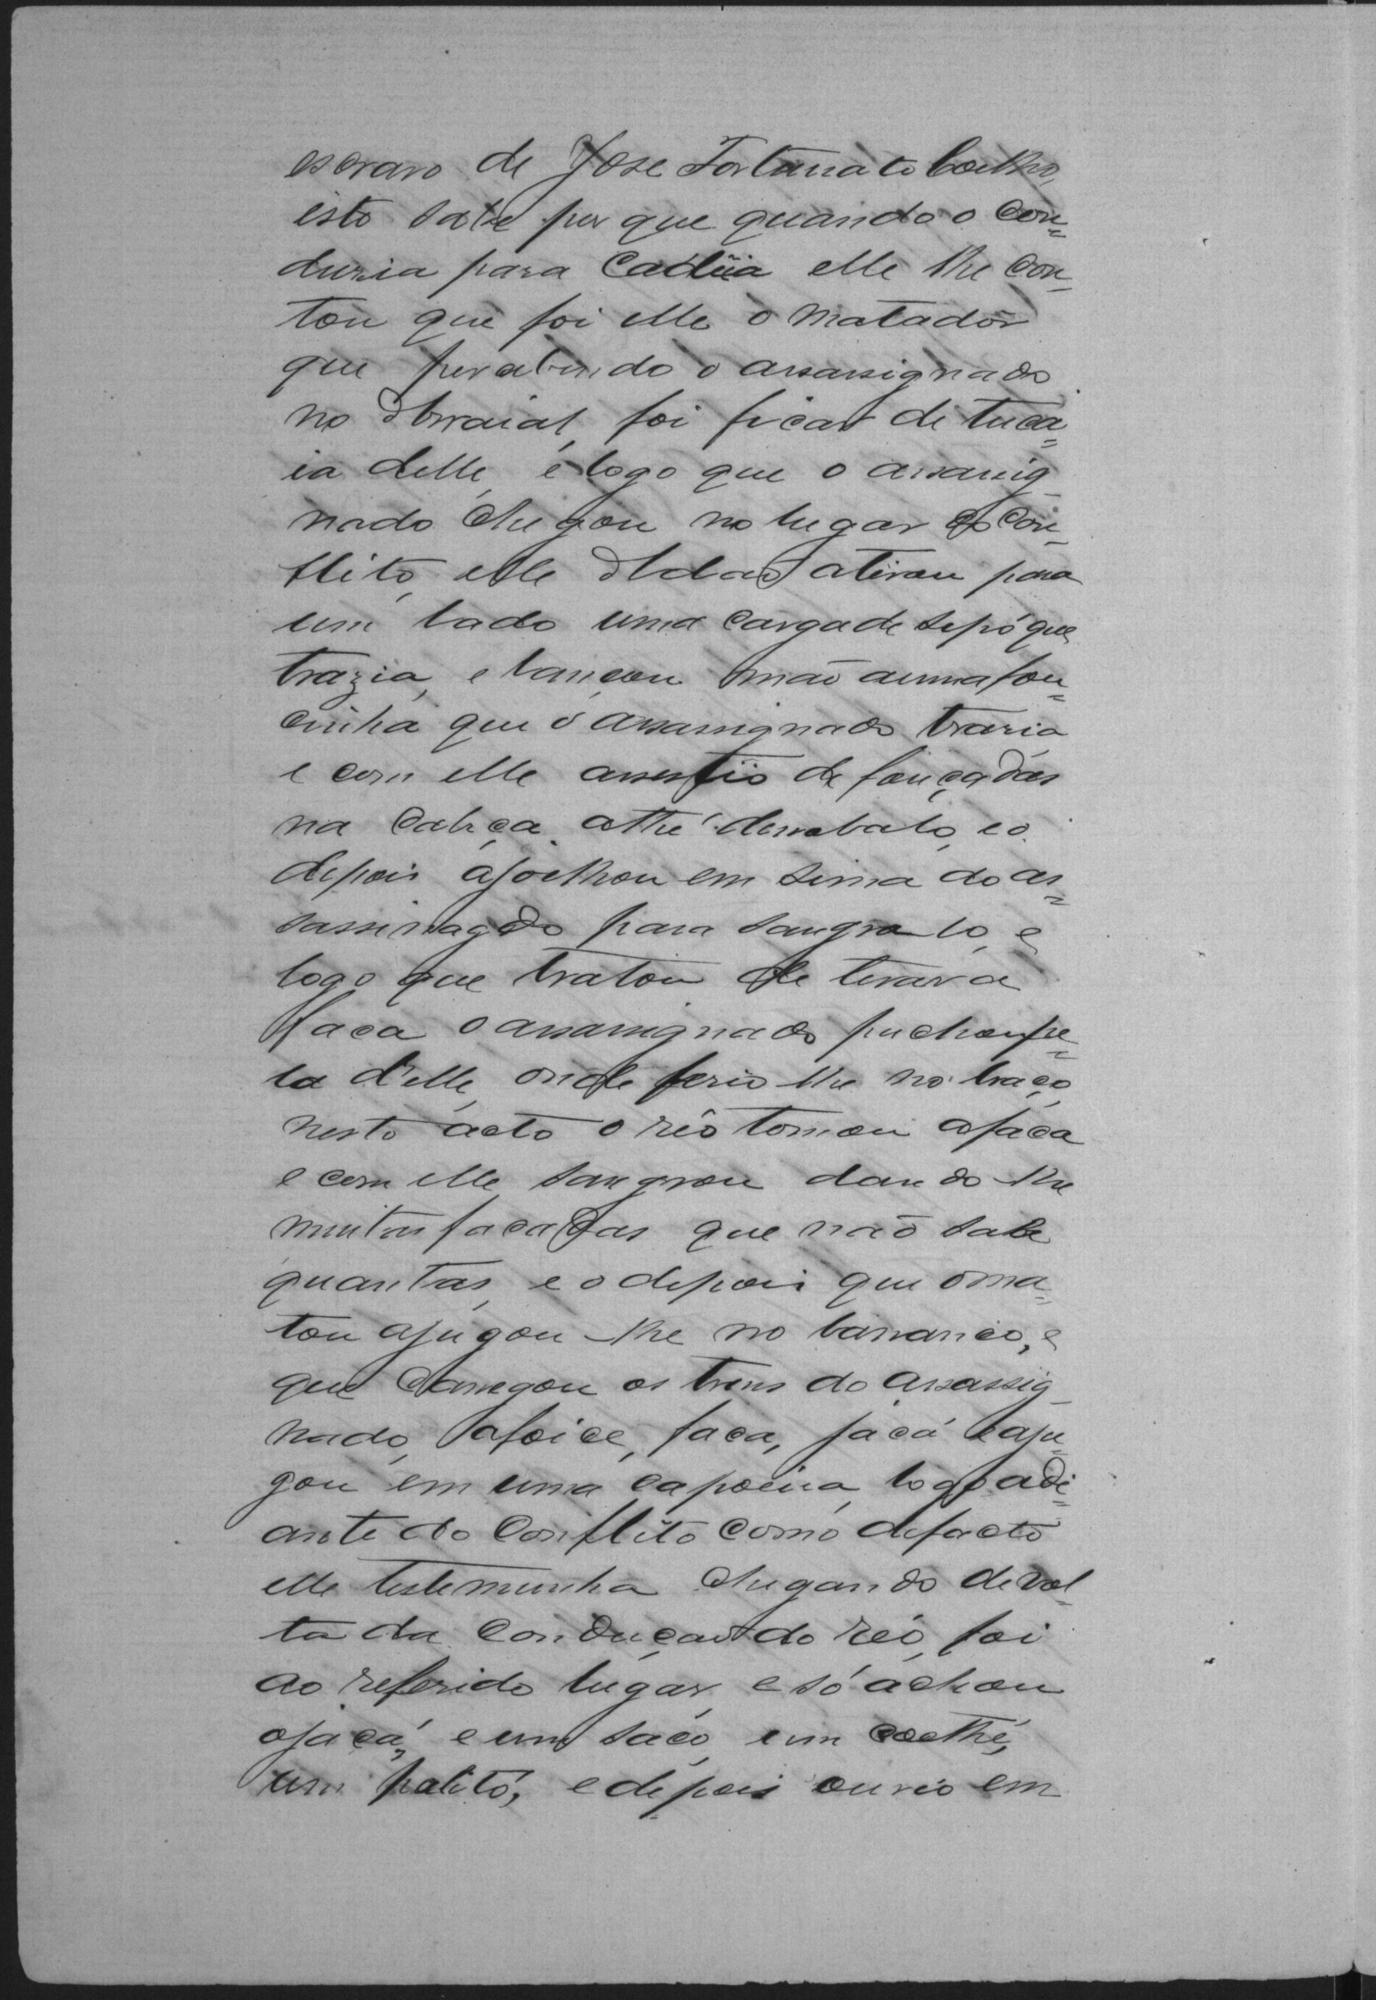 escravo de Jose Fortunato Coelho,
isto sabe por que quando o con=
duzia para Cadêia elle lhe con=
tou que foi elle o matador
que percebendo o assassignado
no Arraial, foi ficar de tuca=
ia delle, e logo que o assassig
nado chegou no lugar do Con=
flito, elle Adão atirou para
um lado uma carga de sepó que
trazia, e lançou mão a uma fou=
cinha que o assassignado trazia
e com elle assestio de fouçadas
na Cabeça athé derrobalo, eo
depois ajoelhou em sima do as=
sassinagdo para sangralo, e
logo que tratou de terar a
faca o assassignado puchou pe=
la d'elle, onde ferio lhe no braço,
nesto acto o réo tomou a faca
e com elle sangrou dando lhe
muitas facadas que não sabe
quantas, e o depois que o ma=
tou ajugou lhe no barranco, e
que carregou os trens do assassig
nado, a foice, faca, jacá e aju=
gou em uma capoeira logo adi=
ante do Conflito como de facto
elle testemunha chegando de vol=
ta da Condução do reo, foi
ao referido lugar, e só achou
o jacá, e um saco, um coethé,
um palitó, e depois ouvio em